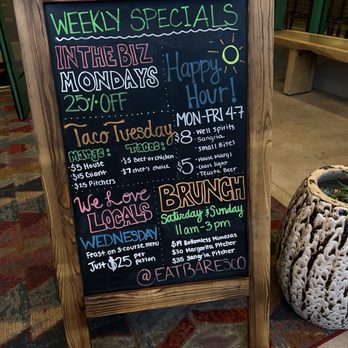 WEEKLY SPECIALS
IN THE BIZ
MONDAYS
25% OFF
Happy
Hour!
MON-FRI 4-7
$8 - Well Spirits
Sangria
Small Bites
$5 - House Marg!
Coors light
Tecate Beer
Taco Tuesday
Margs:
$5 House
$15 Giant
$25 Pitchers
Tacos:
$5 Beef or chicken
$7 chef's choice
We Love
LOCALS
WEDNESDAY
Feast on 3-course menu
Just $25 per
person
BRUNCH
Saturday & Sunday
11am - 3pm
$19 Bottomless Mimosas
$30 Margarita Pitcher
$35 Sangria Pitcher
@EATBARESCO